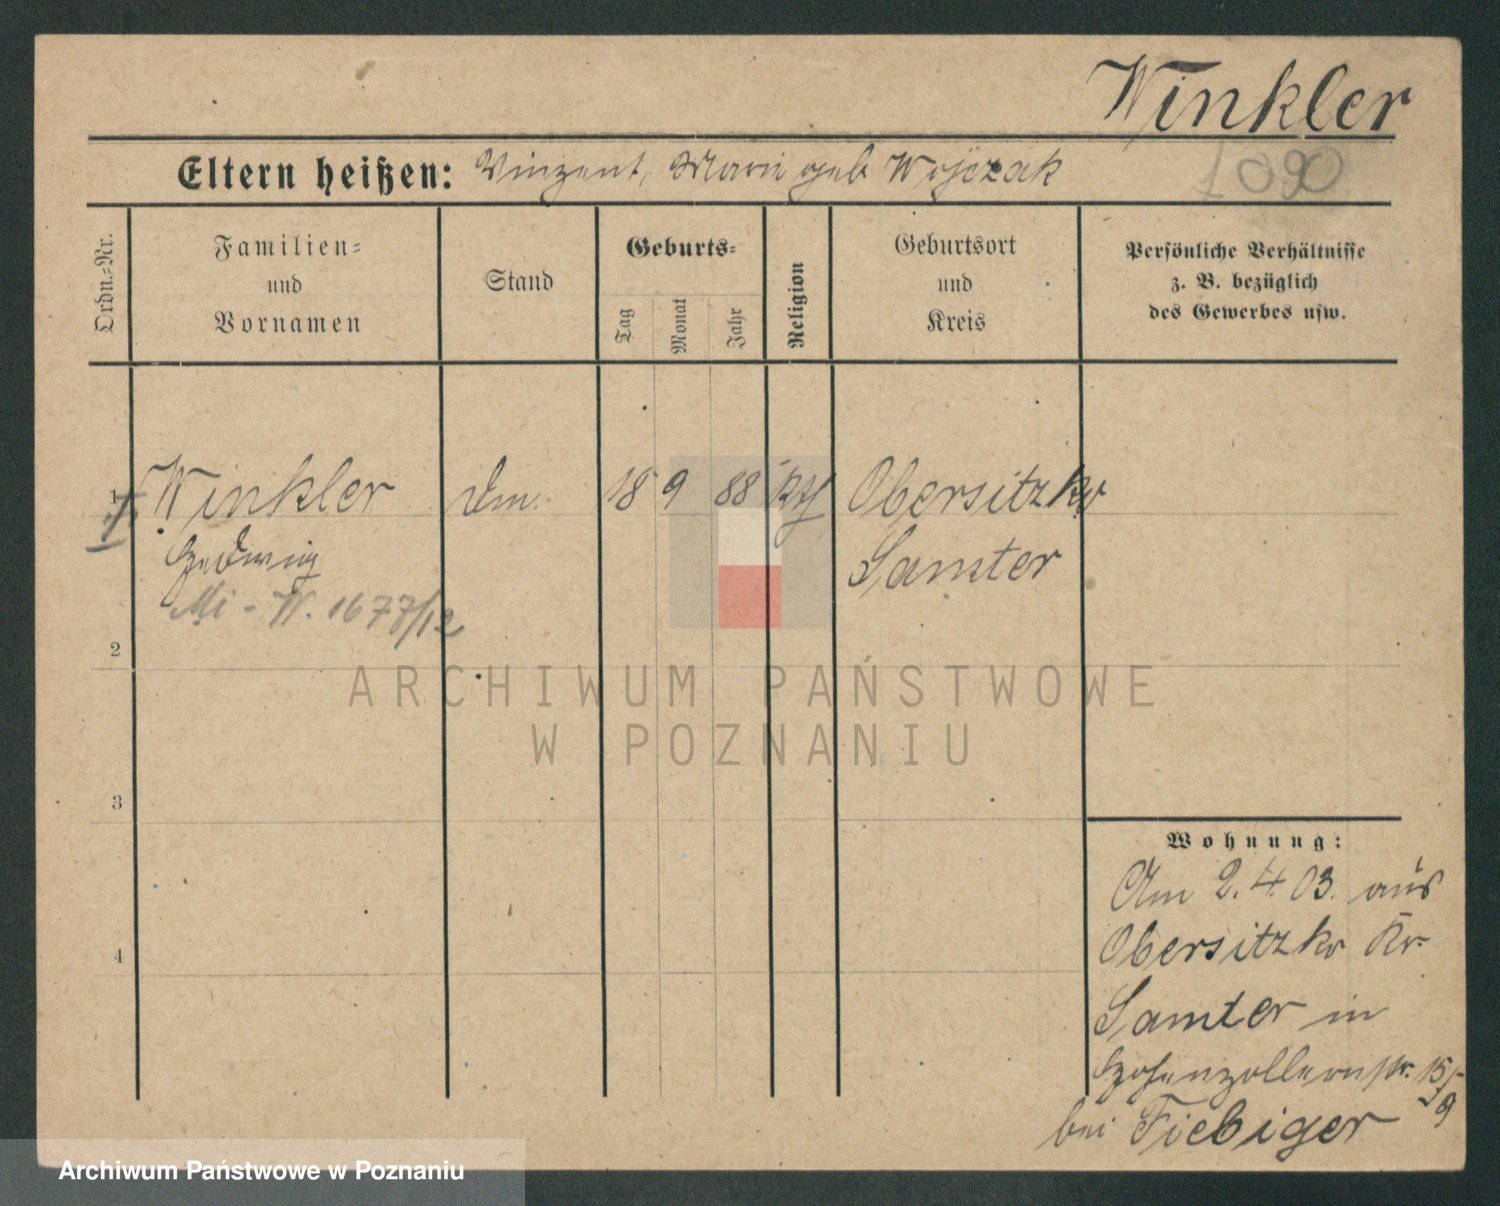 Winkler
1090
Eltern heißen: Vinzent, Marie geb Wojczak
Ordn.-Nr.
Familien-
und
Vornamen
Stand
Geburts-
Tag
Monat
Jahr
Religion
Geburtsort
und
Kreis
Persönliche Verhältnisse
z. B. bezüglich
des Gewerbes usw.
1 Winkler 18 9 88 kth Obersitzko
Hedwig Samter
Mi - W. 1677/12
2
3
4
Wohnung:
Am 2.4.03. aus
Obersitzko Kr.
Samter in
Hohenzollernstr. 15
bei Fiebiger
ARCHIWUM PAŃSTWOWE
W POZNANIU
Archiwum Państwowe w Poznaniu